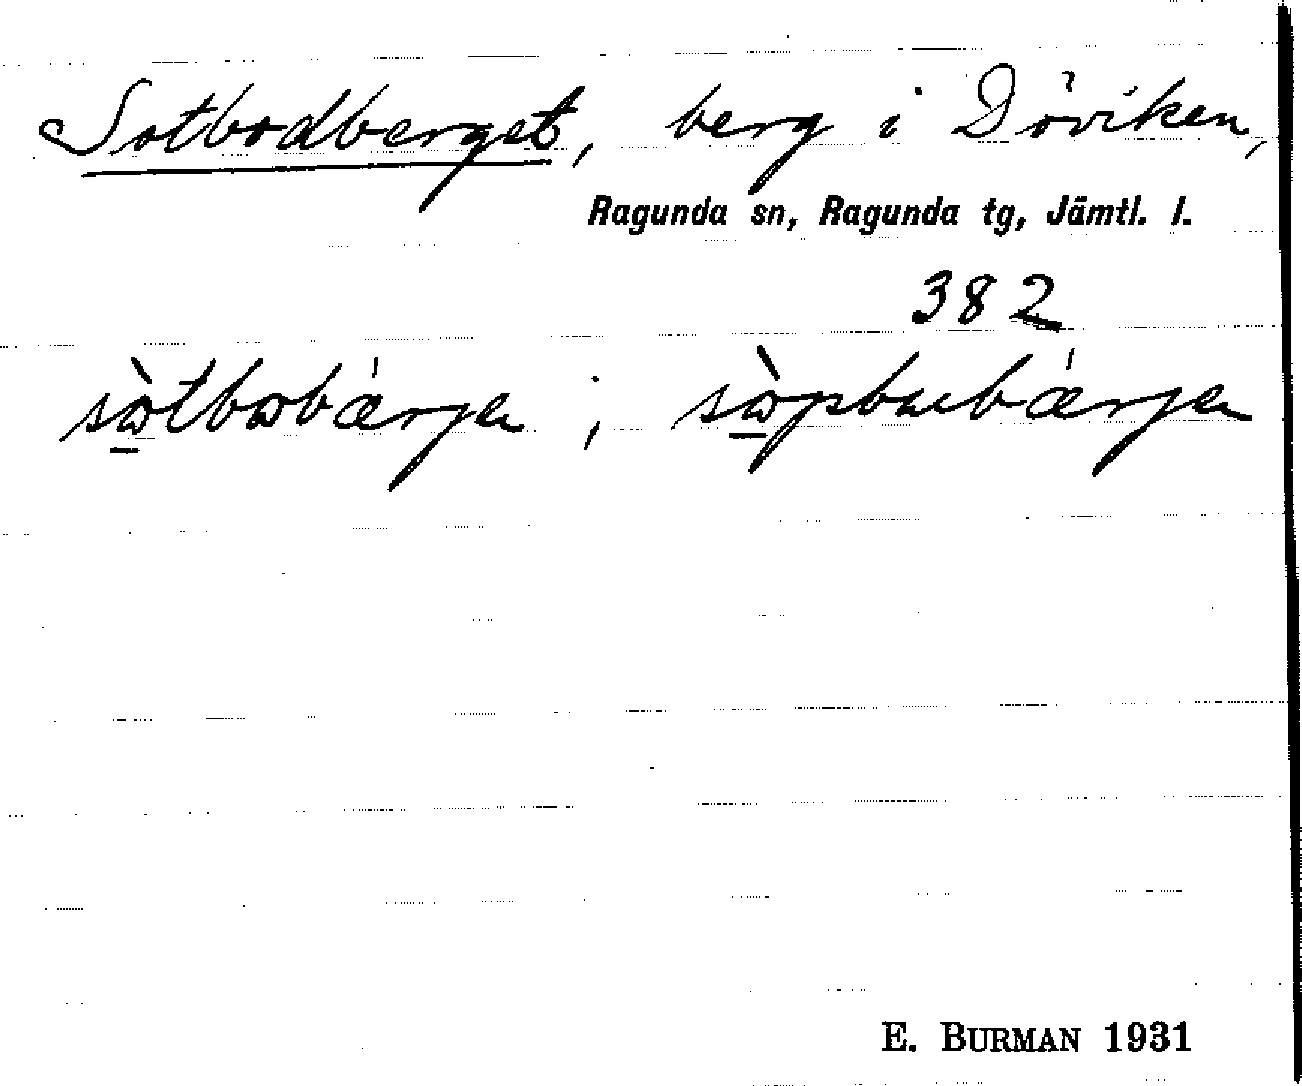 Sotbodberget, berg i Döviken,
Ragunda sn, Ragunda tg, Jämtl. l.
382
sɷ̠̀tbɷbǽrjen ; sɷ̠̀pbuebǽrjen
E. BURMAN 1931